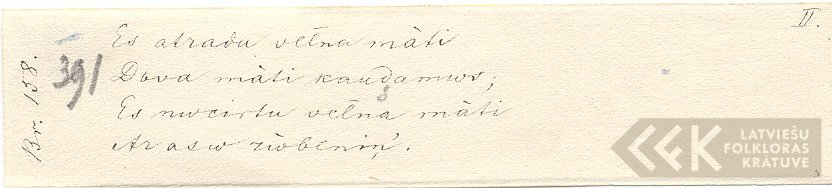 II.
391
Es atradu vełna māti
Dova māti kaudamws;
Es nwcirtu vełna māti
Ar asw zwbeniņ'.
138.
LATVIEŠU
FOLKLORAS
KRĀTUVE